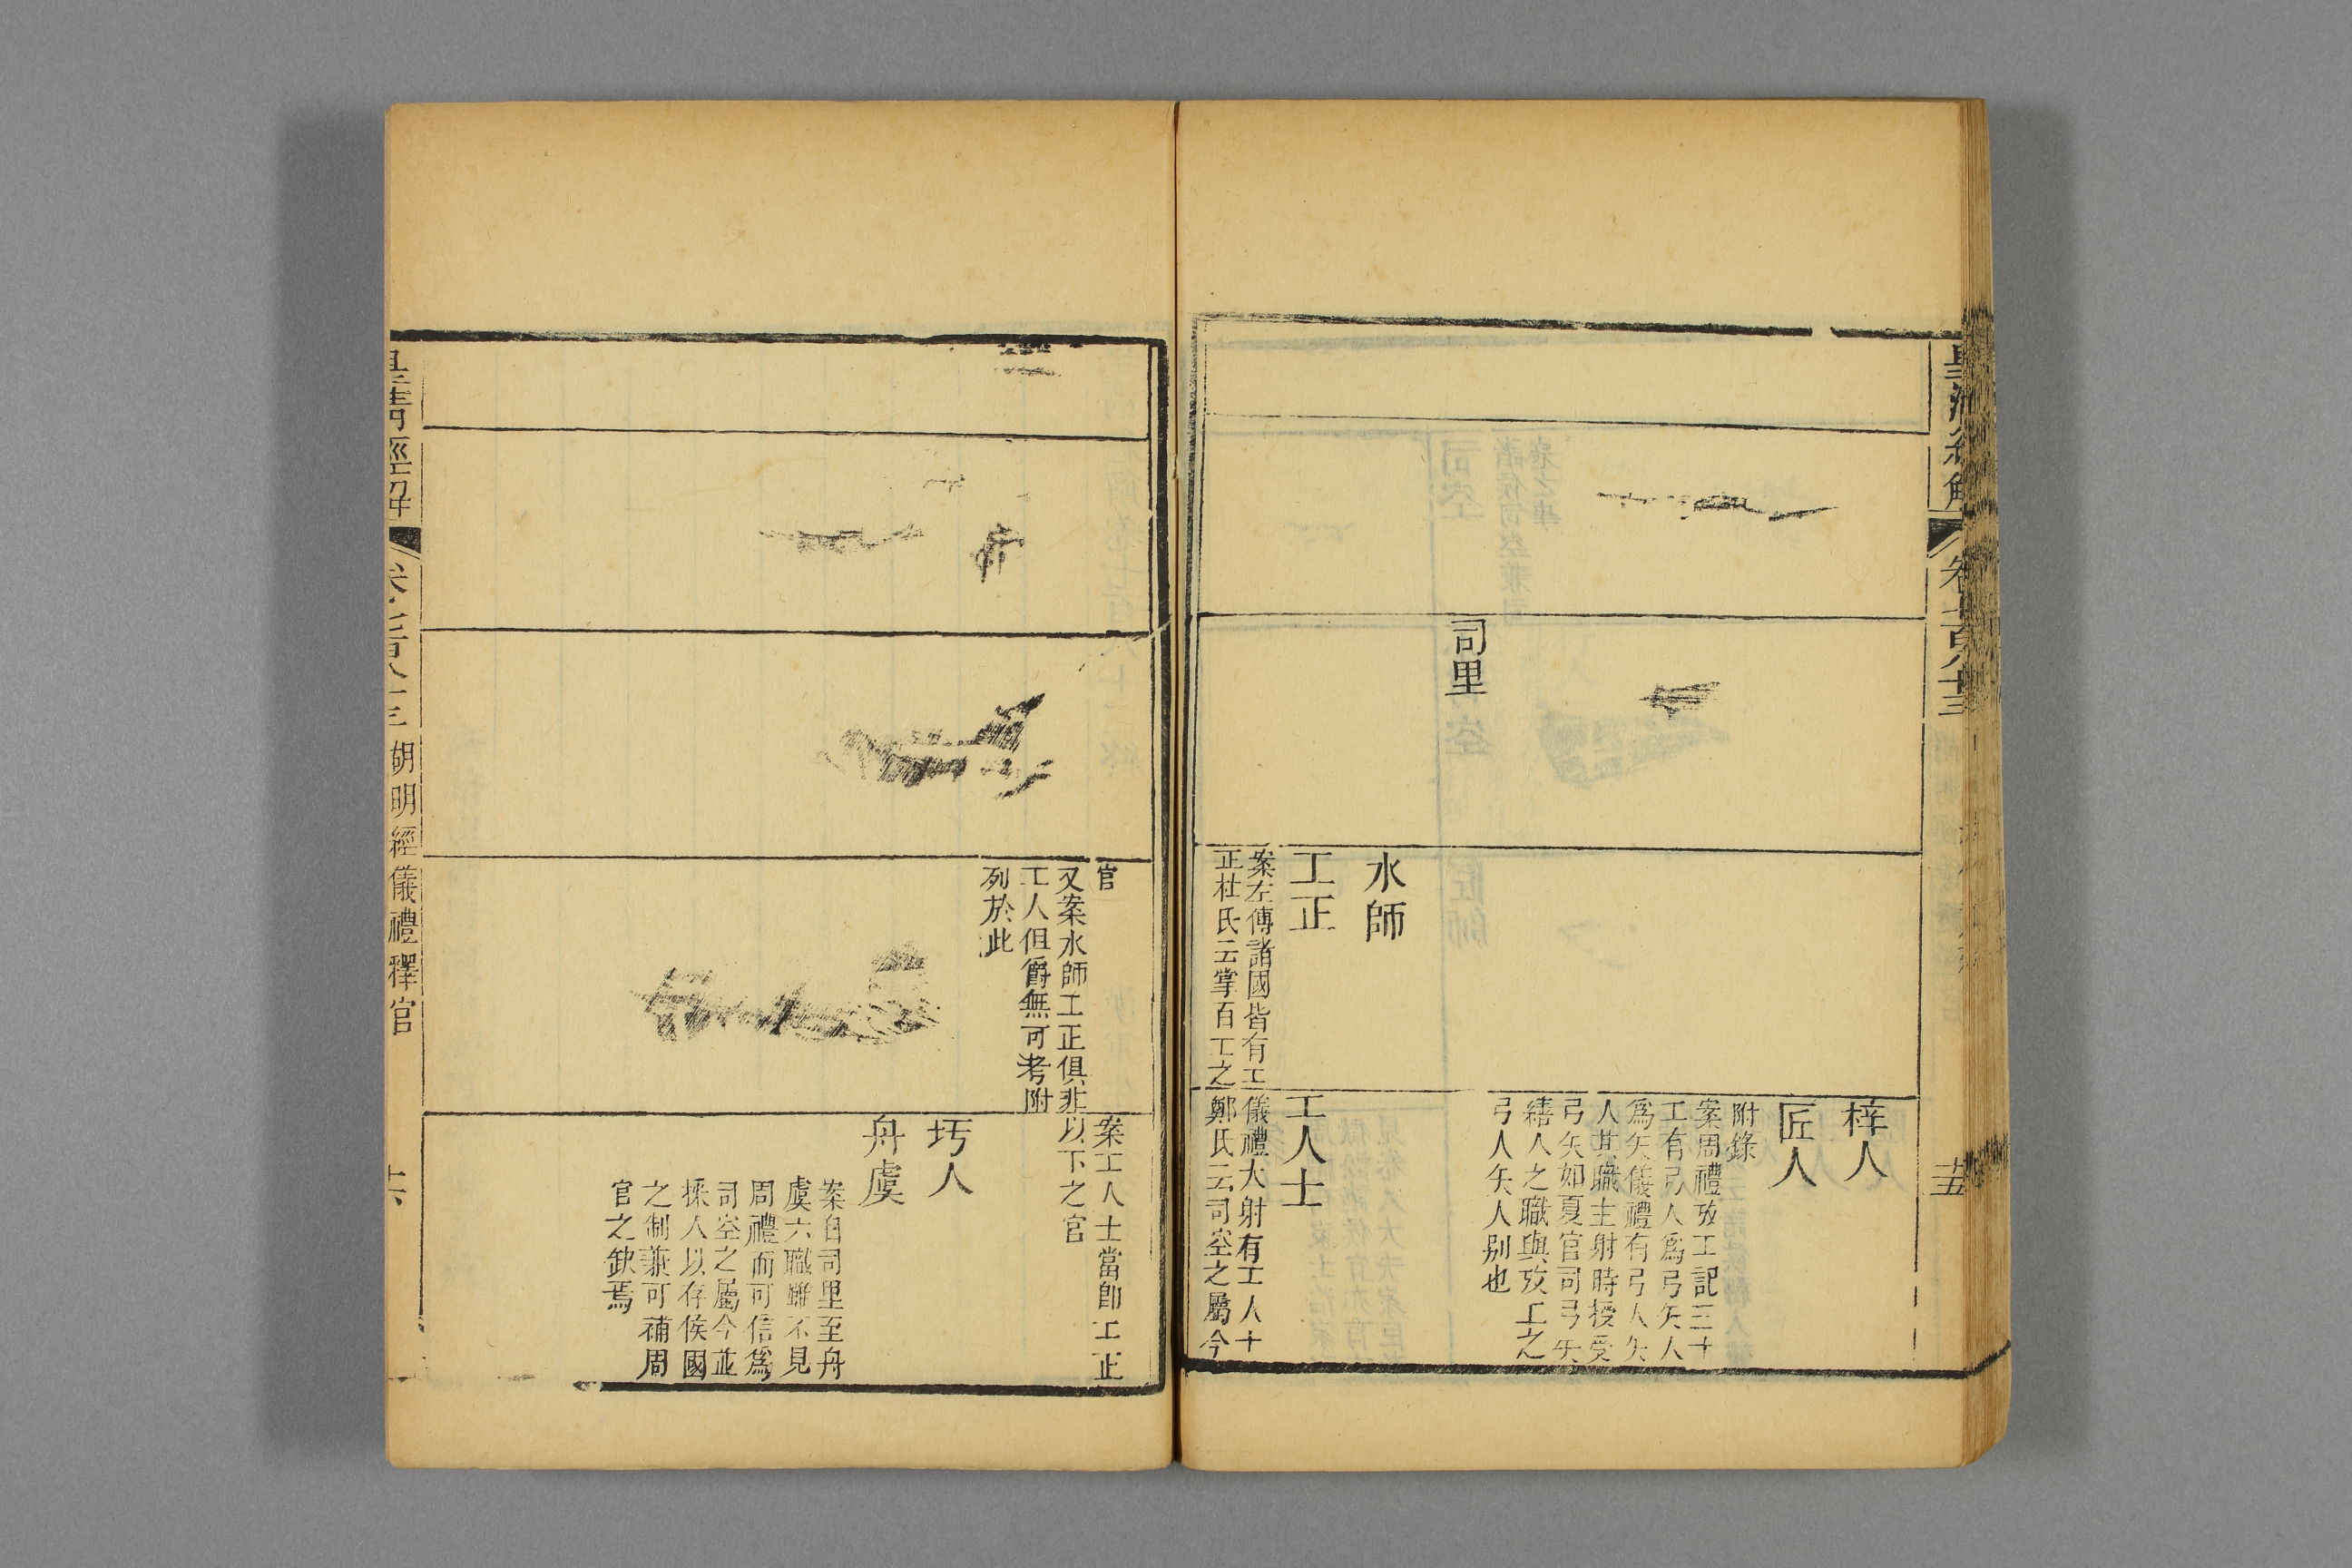 皇清經解
卷七百八十三
十五
梓人
匠人
附錄
案周禮攷工記三十
工有弓人爲弓矢人
爲矢儀禮有弓人矢
人其職主射時授受
弓矢如夏官司弓矢
繕人之職與攷工之
弓人矢人別也
司里
水師
工正
案左傳諸國皆有工
正杜氏云掌百工之
工人士
儀禮大射有工人士
鄭氏云司空之屬今
官
又案水師工正俱非
工人但爵無可考附
列於此
案工人士當卽工正
以下之官
圬人
舟虞
案自司里至舟
虞六職雖不見
周禮而可信爲
司空之屬今並
採人以存侯國
之制兼可補周
官之缺焉
皇清經解
卷七百八十三
胡明經儀禮釋官
十六